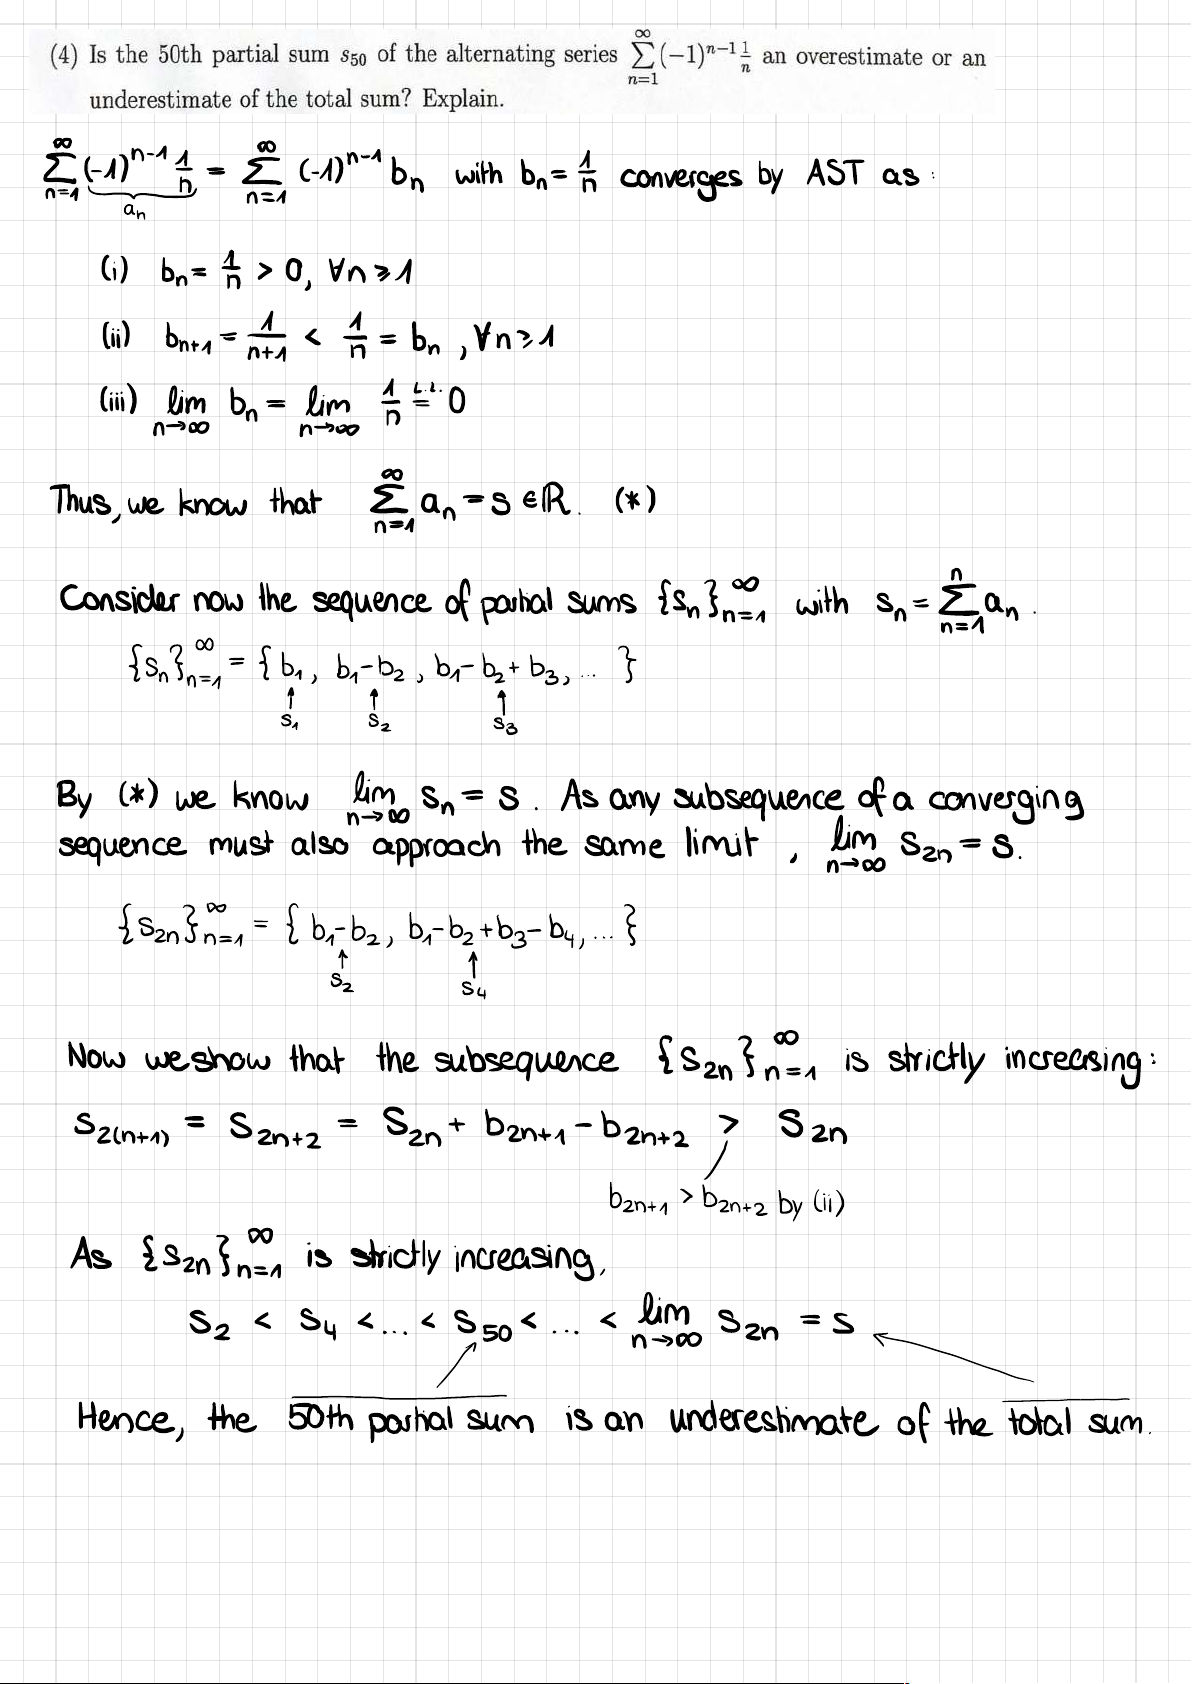 (4) Is the 50th partial sum s₅₀ of the alternating series ∑_{n=1}^{∞} (−1)^{n−1} 1/n an overestimate or an
underestimate of the total sum? Explain.
∑_{n=1}^{∞} (-1)^{n-1} 1/n = ∑_{n=1}^{∞} (-1)^{n-1} bₙ with bₙ = 1/n converges by AST as :
aₙ
(i) bₙ = 1/n > 0, ∀n ≥ 1
(ii) bₙ₊₁ = 1/(n+1) < 1/n = bₙ , ∀n ≥ 1
(iii) lim_{n→∞} bₙ = lim_{n→∞} 1/n = 0
Thus, we know that ∑_{n=1}^{∞} aₙ = s ∈ ℝ. (*)
Consider now the sequence of partial sums {sₙ}_{n=1}^{∞} with sₙ = ∑_{n=1}^{n} aₙ .
{sₙ}_{n=1}^{∞} = { b₁, b₁-b₂, b₁-b₂+b₃, ... }
↑ ↑ ↑
s₁ s₂ s₃
By (*) we know lim_{n→∞} sₙ = s. As any subsequence of a converging
sequence must also approach the same limit, lim_{n→∞} s₂ₙ = s.
{s₂ₙ}_{n=1}^{∞} = { b₁-b₂, b₁-b₂+b₃-b₄, ... }
↑ ↑
s₂ s₄
Now we show that the subsequence {s₂ₙ}_{n=1}^{∞} is strictly increasing:
s_{2(n+1)} = s_{2n+2} = s_{2n} + b_{2n+1} - b_{2n+2} > s_{2n}
b_{2n+1} > b_{2n+2} by (ii)
As {s₂ₙ}_{n=1}^{∞} is strictly increasing,
s₂ < s₄ < ... < s₅₀ < ... < lim_{n→∞} s₂ₙ = s
Hence, the 50th partial sum is an underestimate of the total sum.